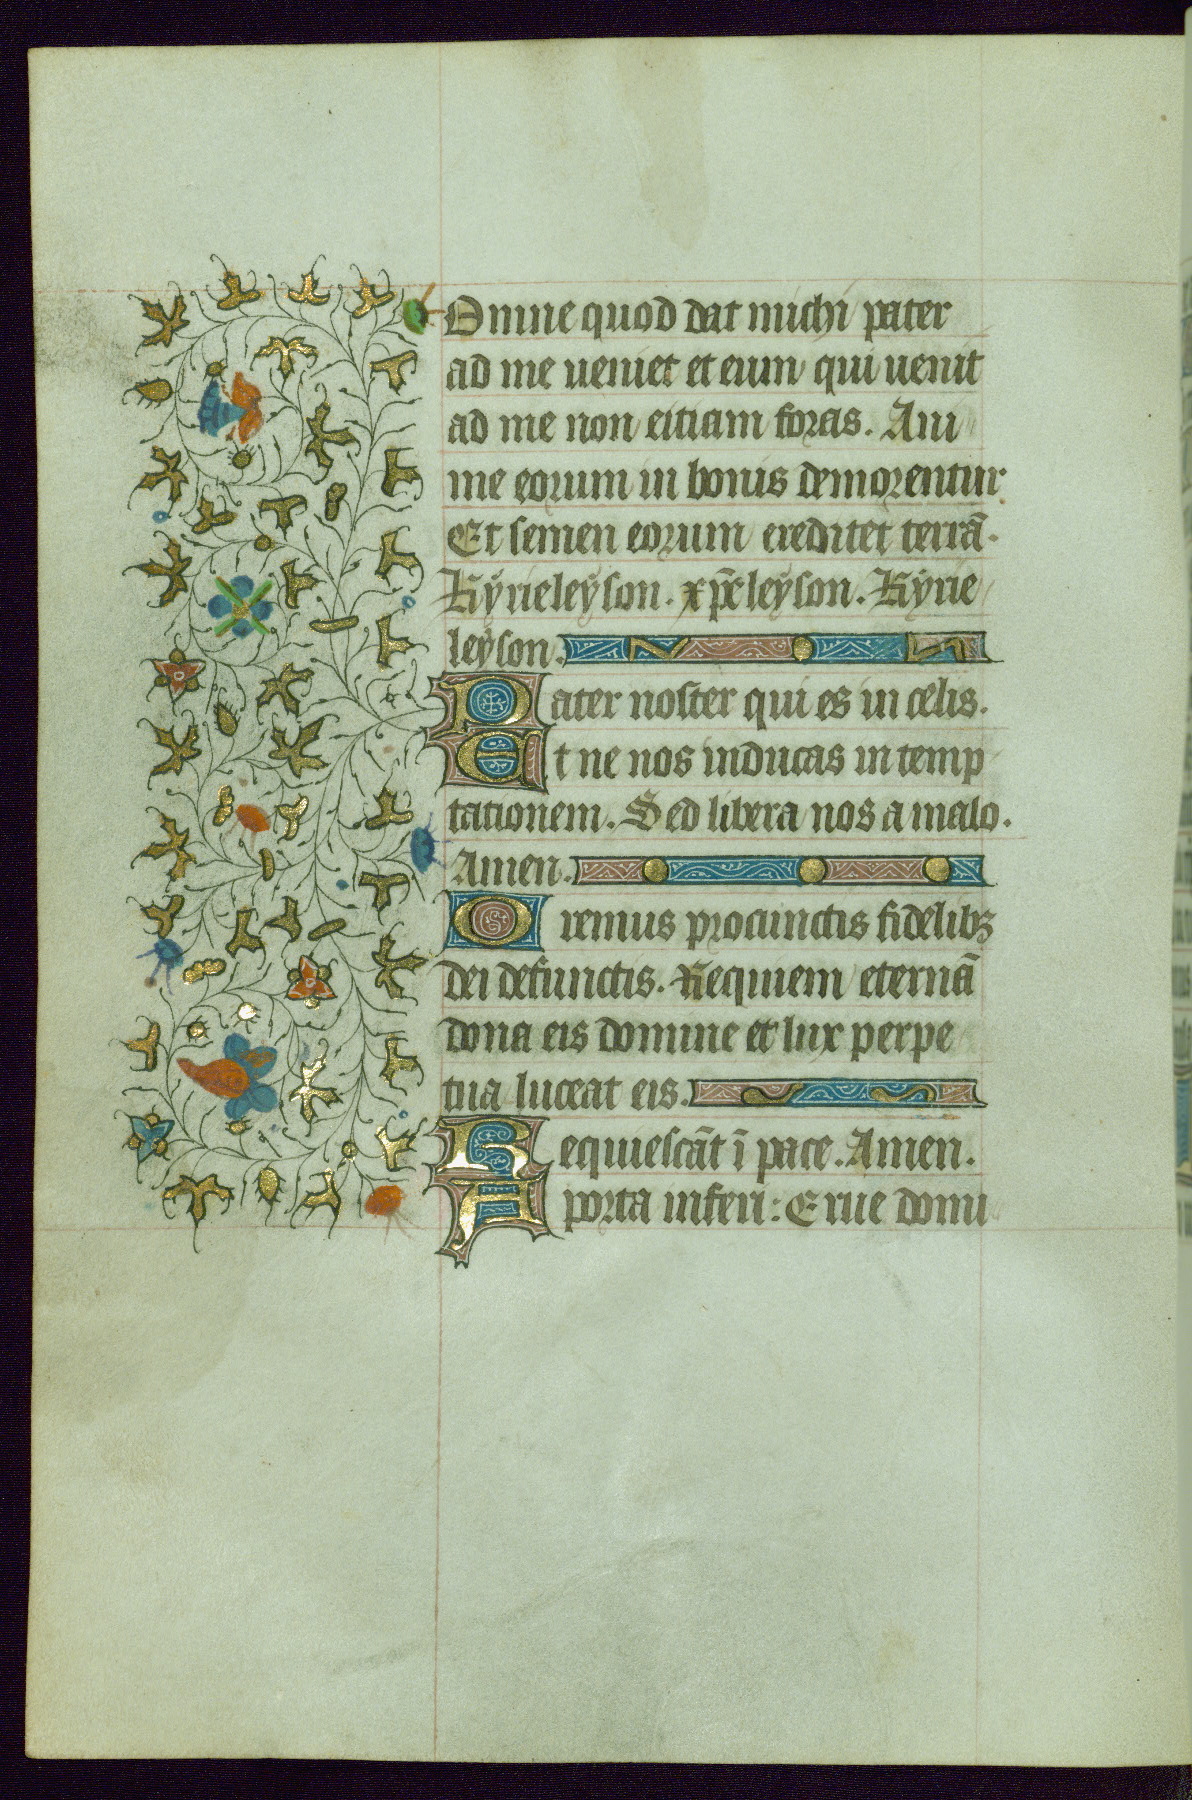 Omne quod dat michi pater
ad me veniet et eum qui uenit
ad me non eitiam foras. Ani
me eorum in bonis demorentur
Et semen eorum ereditet terrā.
Kyrieleyson. xp̄eleyson. Kyrie
leyson.
Pater noster qui es in celis.
Et ne nos inducas in temp
tationem. Sed libera nos a malo.
Amen.
Oremus pro cunctis fidelibꝫ
dei defunctis. Requiem eternā
dona eis domine et lux perpe
tua luceat eis.
Requiescāt ī pace. Amen.
A porta inferi: Erue domi